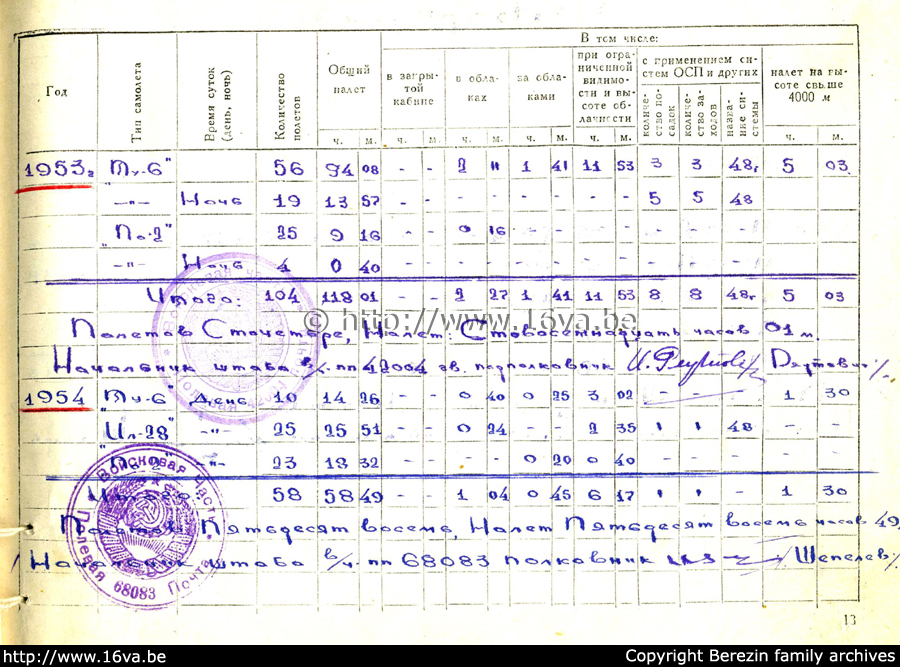 В том числе:
Год | Тип самолета | Время суток (день, ночь) | Количество полетов | Общий налет | в закрытой кабине | в облаках | за облаками | при ограниченной видимости и высоте облачности | с применением систем ОСП и других | налет на высоте свыше 4000 м
ч. м. ч. м. ч. м. ч. м. ч. м. количество посадок | количество заходов | название системы | ч. м.
1953г "Ту-6" 56 94 08 - - 2 11 1 41 11 53 3 3 48г 5 03
-"- Ночь 19 13 57 - - - - - - - - 5 5 48
"По-2" 25 9 16 - - 0 16 - - - - - - - - -
-"- Ночь 4 0 40 - - - - - - - - - - - - -
Итого: 104 118 01 - - 2 27 1 41 11 53 8 8 48г 5 03
© http://www.16va.be
Полетов Сто четыре, Налет: Сто восемнадцать часов 01 м.
Начальник штаба в/ч пп 42004 гв. подполковник
1954 "Ту-6" День 10 14 26 0 40 0 25 3 02 - - - 1 30
"Ил-28" -"- 25 25 51 - - 0 24 - - 2 35 ' ' 48 - -
-"- 23 18 32 0 20 0 40 - - - - -
Итого 58 58 49 - - 1 04 0 45 6 17 ' ' - 1 30
Полетов Пятьдесят восемь, Налет Пятьдесят восемь часов 49
/ Начальник штаба в/ч. пп 68083 полковник / Шепелев /
Войсковая часть
Полевая Почта 68083
13
http://www.16va.be
Copyright Berezin family archives